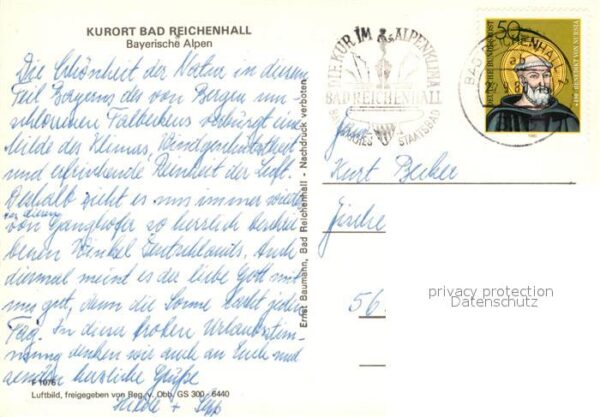 KURORT BAD REICHENHALL
Bayerische Alpen
Die Schönheit der Natur in diesem
Teil Bayerns des von Bergen um-
schlossenen Talbeckens verbürgt eine
Milde des Klimas, Windgeschütztheit
und erfrischende Reinheit der Luft.
Deshalb zieht es uns immer wieder
zu diesem
von Ganghofer so herrlich beschrie
benen Winkel Deutschlands. Auch
diesmal meint es der liebe Gott mit
uns gut, denn die Sonne lacht jeden
Tag. In dieser frohen Urlaubsstim-
mung denken wir auch an Euch und
senden herzliche Grüße
Hilde +
F 1076
Luftbild, freigegeben von Reg. v. Obb. GS 300 - 6440
Ernst Baumann, Bad Reichenhall - Nachdruck verboten
DIE KUR IM ALPENKLIMA
BAD REICHENHALL
BAYERISCHES STAATSBAD
BAD REICHENHALL
50
DEUTSCHE BUNDESPOST
BENEDIKT VON NURSIA
Kurt Becker
56
privacy protection
Datenschutz